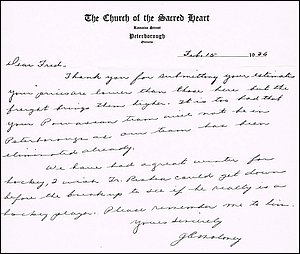 The Church of the Sacred Heart
Romaine Street
Peterborough
Ontario
Feb. 15 1936
Dear Fred:
Thank you for submitting your estimate
your prices are lower than those here but the
freight brings them higher. It is too bad that
your Powassan team will not be in
Peterborough as our team has been
eliminated already.
We have had a great winter for
hockey, I wish Fr. could get down
before the breakup to see if he really is a
hockey player. Please remember me to him.
Yours sincerely